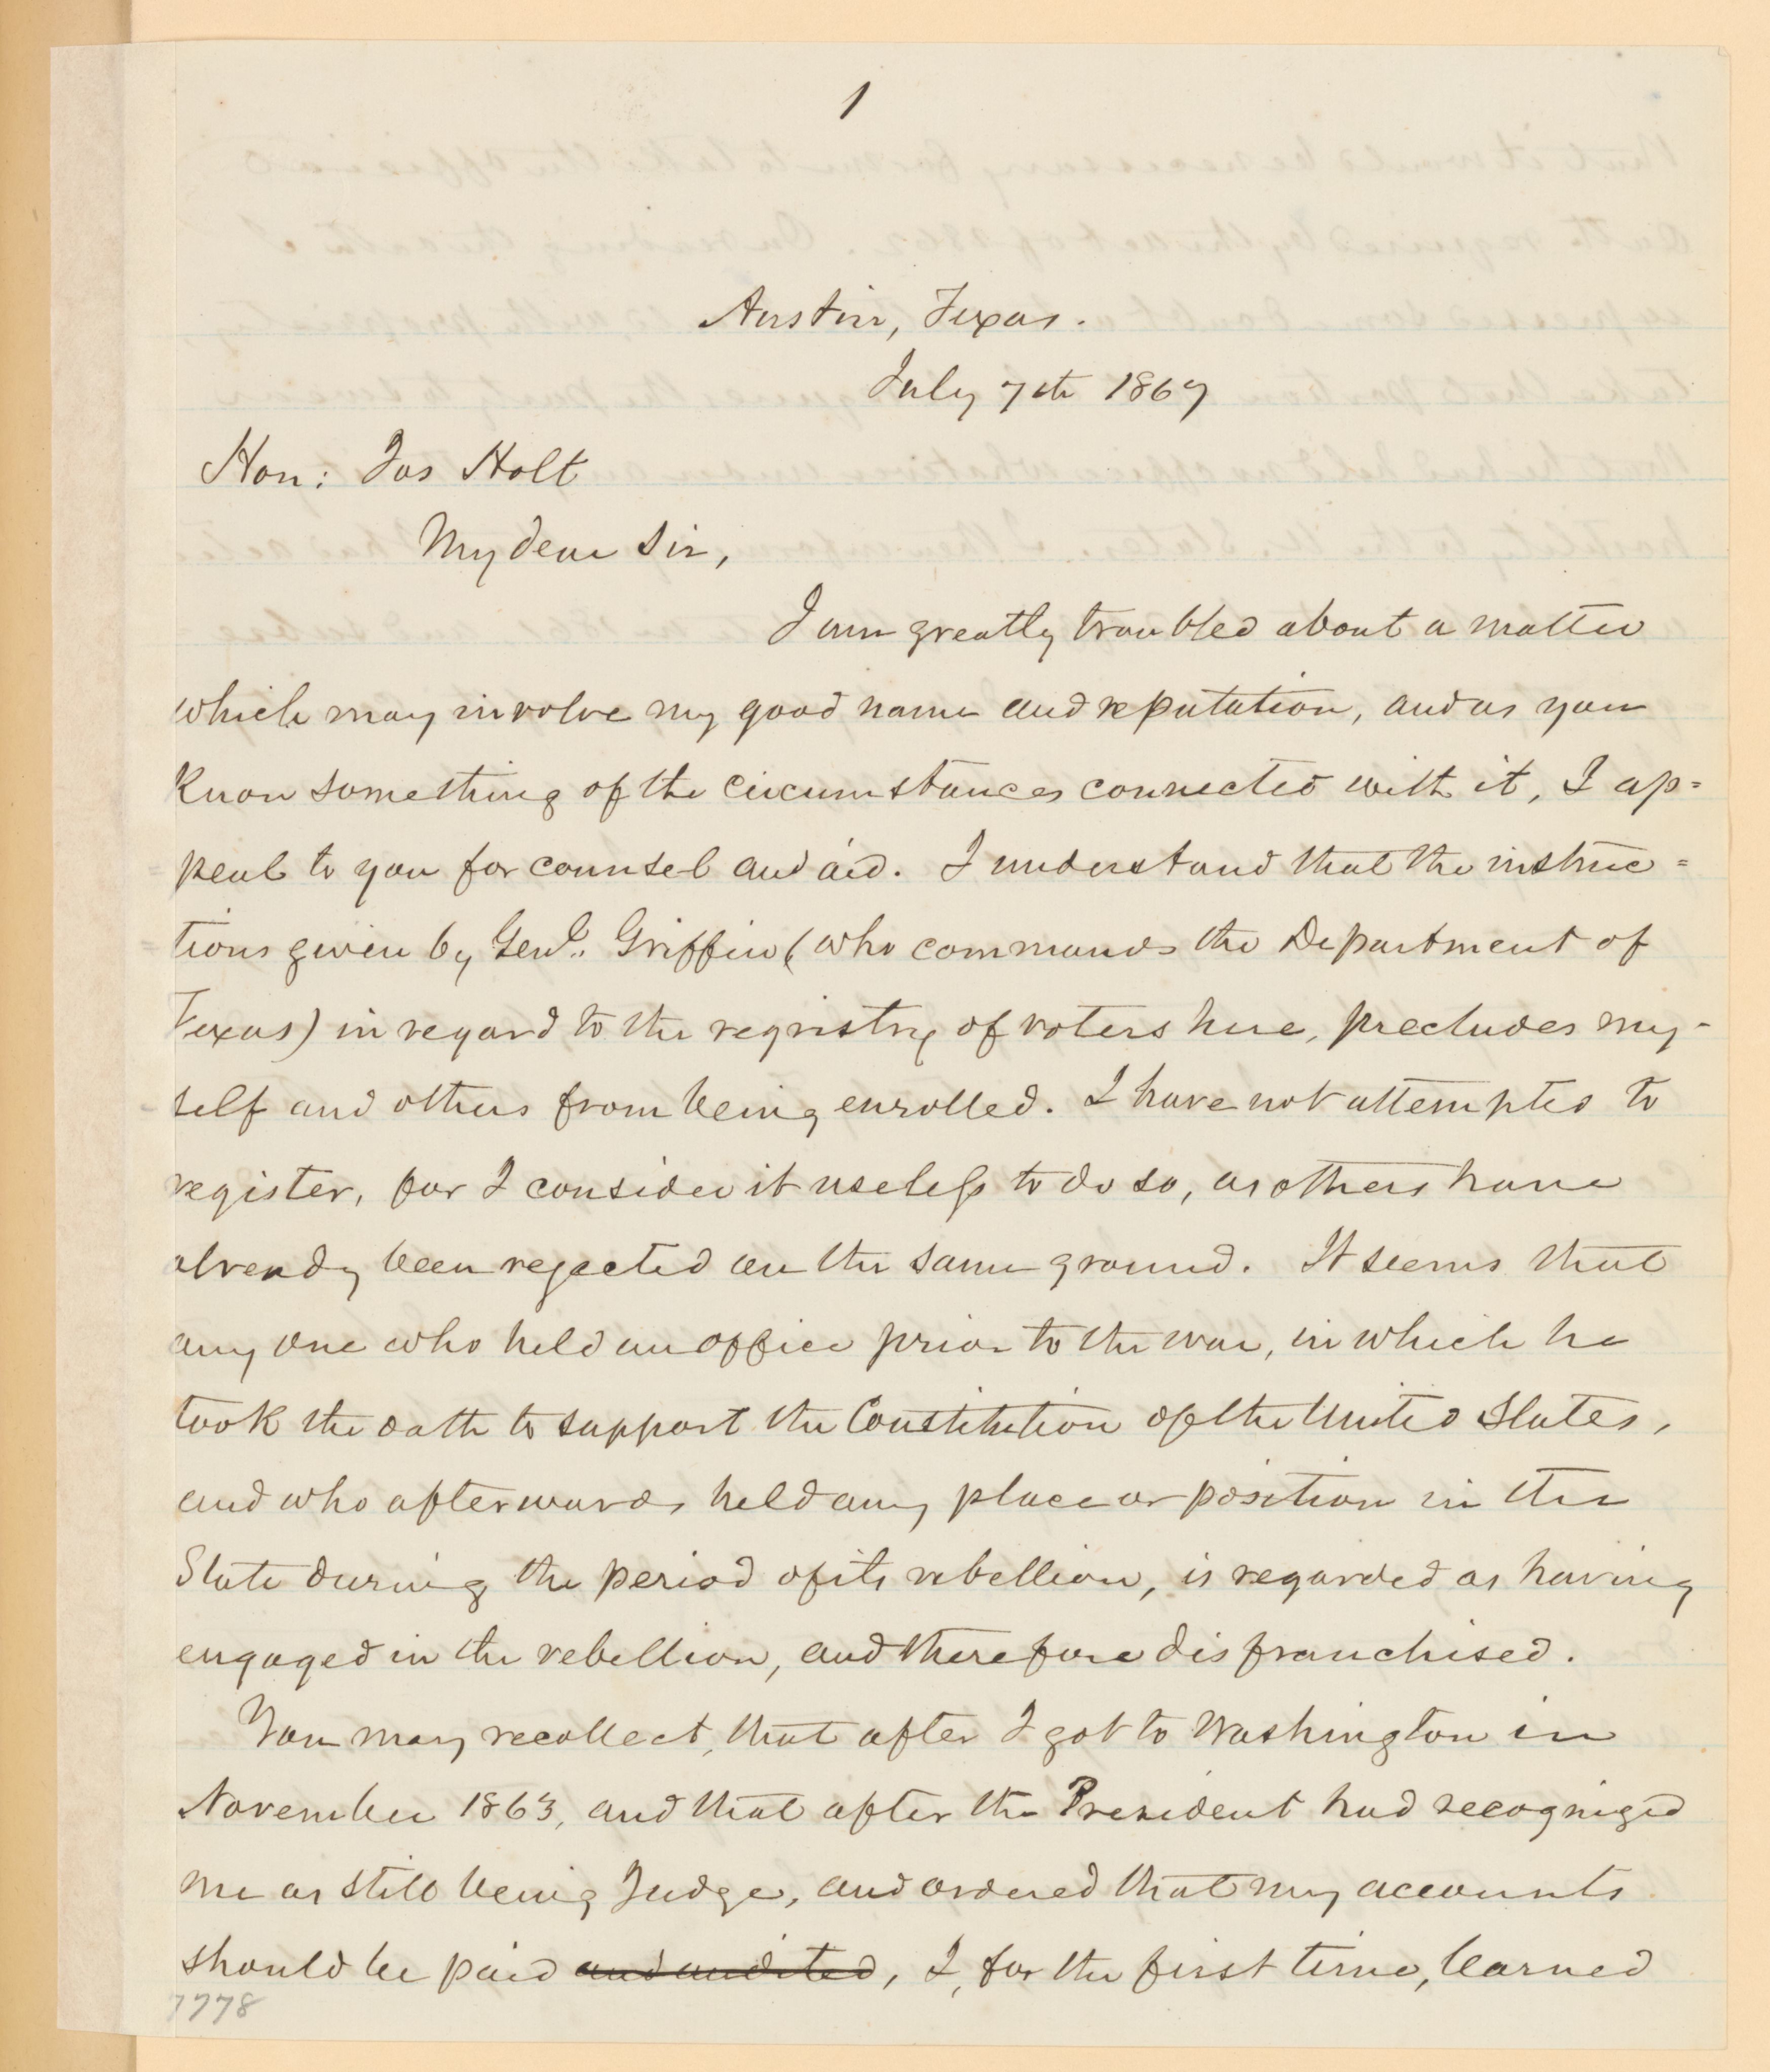 1
Austin, Texas.
July 7th 1867
Hon: Jos Holt
My dear Sir,
I am greatly troubled about a matter
which may involve my good name and reputation, and as you
know something of the circumstances connected with it, I ap=
peal to you for counsel and aid. I understand that the instruc=
tions given by Genl. Griffin (who commands the Department of
Texas) in regard to the registry of voters here, precludes my-
self and others from being enrolled. I have not attempted to
register, for I consider it useless to do so, as others have
already been rejected on the same ground. It seems that
any one who held an office prior to the war, in which he
took the oath to support the Constitution of the United States,
and who afterwards held any place or position in the
State during the period of its rebellion, is regarded as having
engaged in the rebellion, and therefore disfranchised.
You may recollect, that after I got to Washington in
November 1863, and that after the President had recognized
me as still being Judge, and ordered that my accounts
should be paid and audited, I, for the first time, learned
7778